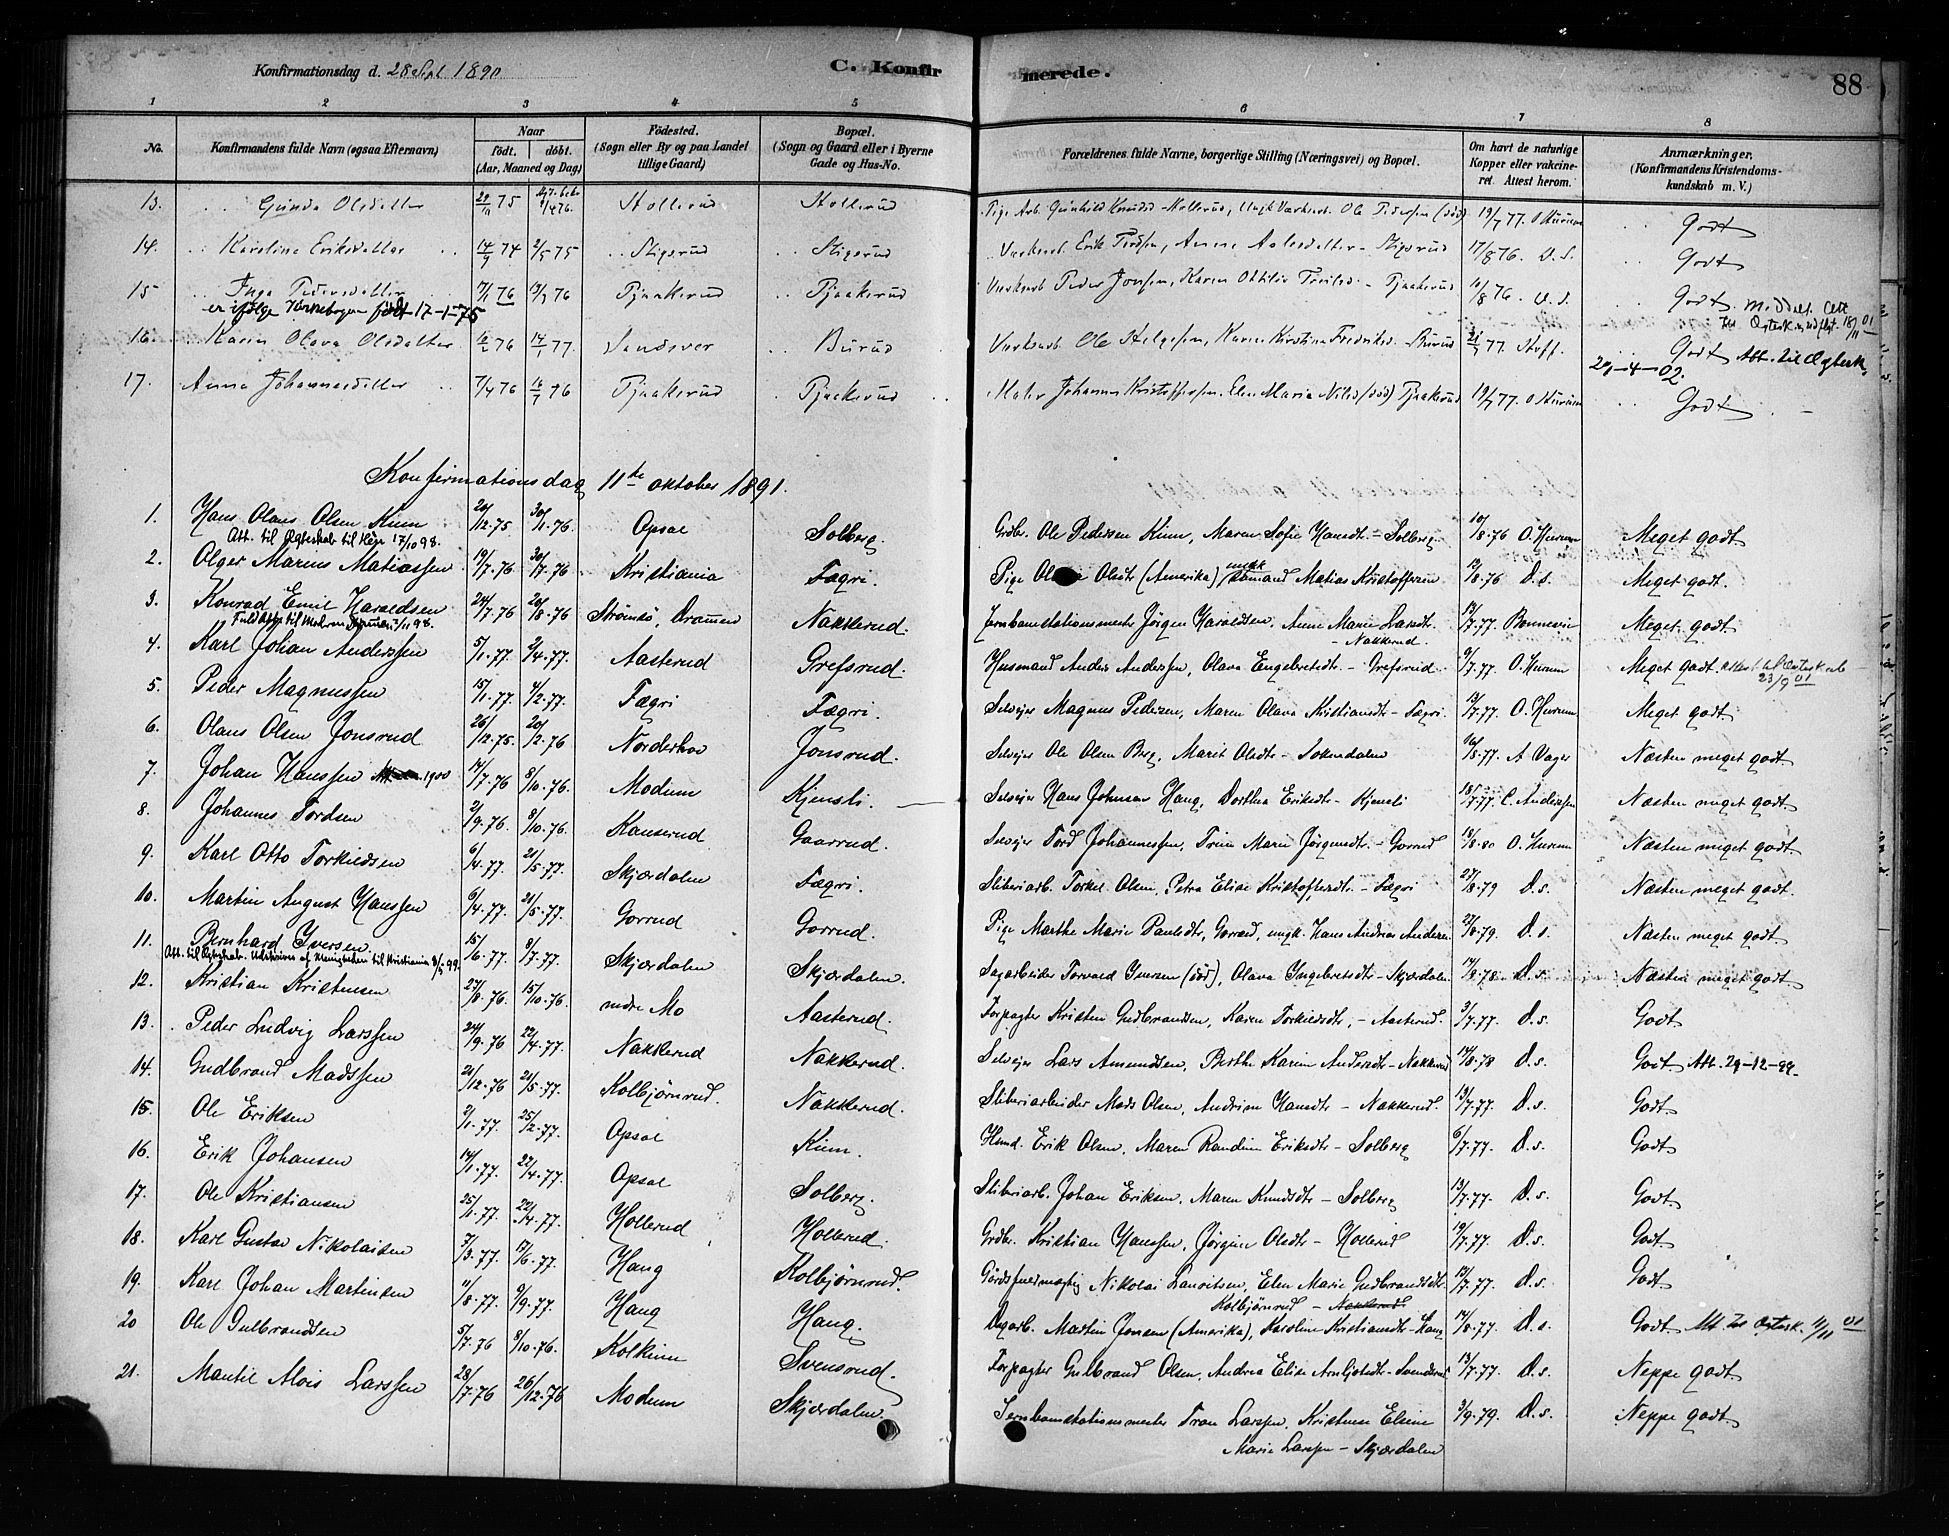 Konfirmationsdag d. 28 Sept 1890
C. Konfirmerede.
88
1 2 3 4 5 6 7 8
No.
Konfirmandens fulde Navn (ogsaa Efternavn)
Naar
födt. döbt.
(Aar, Maaned og Dag)
Födested.
(Sogn eller By og paa Landet tillige Gaard)
Bopæl.
(Sogn og Gaard eller i Byerne Gade og Hus-No.
Forældrenes fulde Navne, borgerlige Stilling (Næringsvei) og Bopæl.
Om havt de naturlige Kopper eller vakcineret. Attest herom.
Anmærkninger.
(Konfirmandens Kristendomskundskab m. V.)
13. Gunda Olsdatter 29/11 75 Hollerud Hollerud Pige Arb. Gunhild Knudsd - Hollerud, Ungk Værksarb. Ole Pedersen (död) 19/7 77. O Hurum Godt
14. Karoline Eriksdatter 14/9 74 2/5 75 Stigsrud Stigsrud Værksarb Erik Tordsen, Anne Aslesdatter - Stigsrud 17/8 76. D. S. Godt
15 Inga Pedersdatter 17/1 76 19/3 76 Tjaakerud Tjaakerud Værksarb Peder Jonsen, Karen Othilie - Tjaakerud 10/8 76. D. S. Godt
er ifölge Kirkebogen födt 17-1-75
16. Karen Olava Olsdatter 16/2 76 14/1 77. Sandsver Burud Værksarb Ole Helgesen, Karen Kirstine Fredriksd. - Burud 21/7 77. Hoff. Godt Att. til Ægtesk.
20-4-02.
17. Anna Johannesdatter 7/4 76 16/7 76 Tjaakerud Tjaakerud Maler Johannes Kristoffersen, Elen Maria Nilsd (död) Tjaakerud 19/7 77. O Hurum Godt
Konfirmationsdag 11te oktober 1891.
1. Hans Olaus Olsen Kium 20/12.75 30/1.76. Opsal Solberg. Grdbr. Ole Pedersen Kium, Maren Sofie Hansdt. - Solberg 10/8.76 O. Hurum Meget godt
Att. til Ægteskab til Hole 17/10 98.
2. Olger Marius Matiassen 19/7.76 30/7.76 Kristiania Fægri. Pige Olsdtr (Amerika) ungk Matias Kristoffersen 12/8.76 D. s. Meget godt.
3. Konrad Emil Haraldsen 24/7.76 20/8.76 Strömsö, Drammen Nakkerud. Jernbanestationsmester Jörgen Haraldsen, Anne Marie Larsdtr. - Nakkerud 13/7.77. Bonnevie Meget godt
4. Karl Johan Anderssen 5/1.77. 2/4.77. Aasterud Grefsrud. Husmand Anders Anderssen, Olava Engebretsdt. - Grefsrud 9/7.77. O. Hurum Meget godt. Attest til Ægteskab 23/9 01
5. Peder Magnussen 15/1.77. 4/2.77. Fægri Fægri. Selvejer Magnus Pedersen, Maren Olava Kristiansdt - Fægri. 13/7.77. O. Hurum Meget godt
6. Olaus Olsen Jonsrud 26/12.75. 20/2.76 Norderhov Jonsrud. Selvejer Ole Olsen Berg, Marit Olsdt. - Sokendalen 16/8.77. A Vager Næsten meget godt.
7. Johan Hanssen 1900 14/7.76 8/10.76. Modum Kjensli. Selvejer Hans Johnsen Haug, Dorthea Eriksdt - Kjensli 18/7.77. C. Anderssen Næsten meget godt
8. Johannes Tordsen 2/9.76. 8/10.76. Kanserud Gaarud. Selvejer Tord Johannessen, Trine Marie Jörgensdt. - Gorrud 13/8.80 O. Hurum Næsten meget godt
9. Karl Otto Torkildsen 6/4.77. 21/5.77. Skjærdalen Fægri. Sliberiarb. Torkel Olsen, Petra Elise Kristoffersdt. - Fægri 27/8.79 D. s. Næsten meget godt.
10. Martin August Hanssen 6/4.77. 21/5.77. Gorrud Gorrud. Pige Marthe Marie Paulsdt, Gorrud, ungk. Hans Andreas Andersen 22/8.79. D. s. Næsten meget godt
11. Bernhard Iversen 15/6.77. 9/7.77. Skjærdalen Skjærdalen. Sagarbeider Torvald Iversen (död), Olava Ingebretsdt - Skjærdalen 14/8.78. D. s. Næsten meget godt
Att. til Ægteskab. Udskrives af Menigheden til Kristiania 8/5 99.
12. Kristian Kristensen 27/8.76. 15/10.76. nedre Mo Aasterud. Forpagter Kristen Gudbrandsen, Karen Torkildsdt. - Aasterud. 3/7.77. D. s. Godt
13. Peder Ludvig Larssen 24/9.76 22/4.77. Nakkerud Nakkerud. Selvejer Lars Amundsen, Berthe Karine Andersdt - Nakkerud 14/8.78 D. s. Godt Att. 29-12-99.
14. Gudbrand Madssen 21/12.76 21/5.77. Kolbjörnrud. Nakkerud. Sliberiarbeider Mads Olsen, Andrine Hansdtr - Nakkerud. 13/7.77. D. s. Godt
15. Ole Eriksen 2/1.77. 25/2.77. Opsal Kium. Husmd. Erik Olsen, Maren Randine Eriksdt - Solberg 6/7.77. D. s. Godt
16. Erik Johansen 14/1.77. 22/4.77. Opsal Solberg. Sliberiarb. Johan Eriksen, Maren Knudsdtr - Solberg 13/7.77. D. s. Godt.
17. Ole Kristiansen 25/1.77. 22/4.77. Hollerud Hollerud. Grdbr. Kristian Hanssen, Jörgine Olsdtr - Hollerud 19/7.77. D. s. Godt.
18. Karl Gustav Nikolaisen 3/3.77. 17/6.77. Haug Kolbjörnrud. Nikolai Lauritsen, Elen Marie Gudbrandsdt. Kolbjörnrud - Nakkerud 13/7.77. D. s. Godt
19. Karl Johan Martinsen 11/8.77. 9/9.77. Haug Haug. Dagarb. Martin Jonsen (Amerika), Karoline Kristiansdt - Haug 14/8.77. D. s. Godt. Att til Ægtesk. 11/11 01
20 Ole Gulbrandsen 5/7.76 8/10.76. Kolkinn Svensrud. Forpagter Gulbrand Olsen, Andrea Elise Arnljotsdt - Svensrud 13/7.77. D. s. Neppe godt
21. Mantil Alois Larssen 28/7.76 26/12.76 Modum Skjærdalen. Jernbanestationsmester Fran Larssen, Kristense Elsine Marie Larssen - Skjærdalen 3/9.79. D. s. Neppe godt